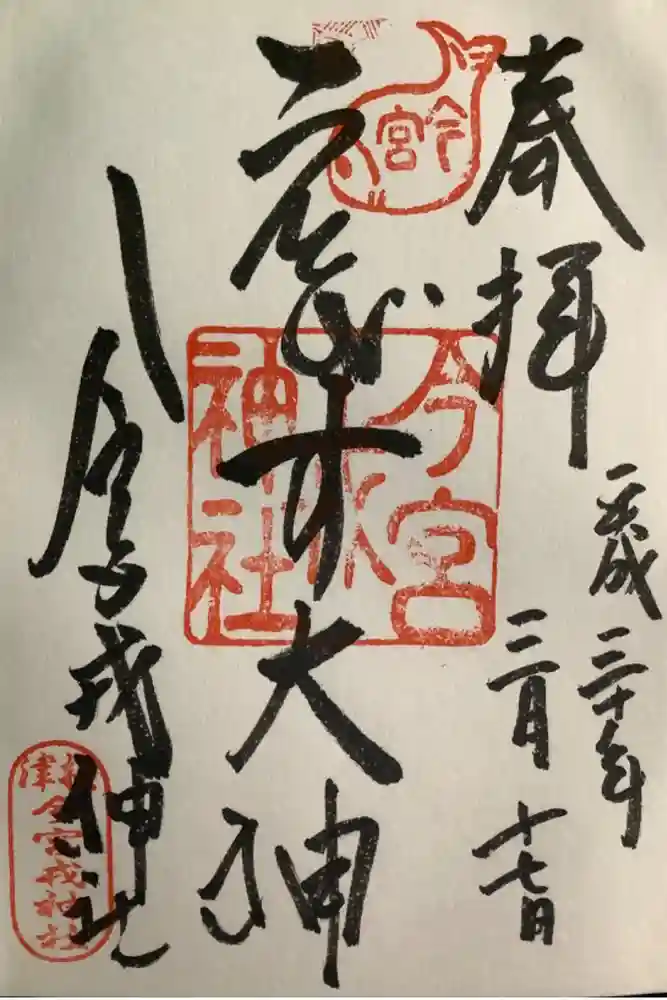 奉拝
平成三十年
三月十七日
今宮
えびす大神
今宮戎神社
今宮戎神社
摂津
今宮戎神社